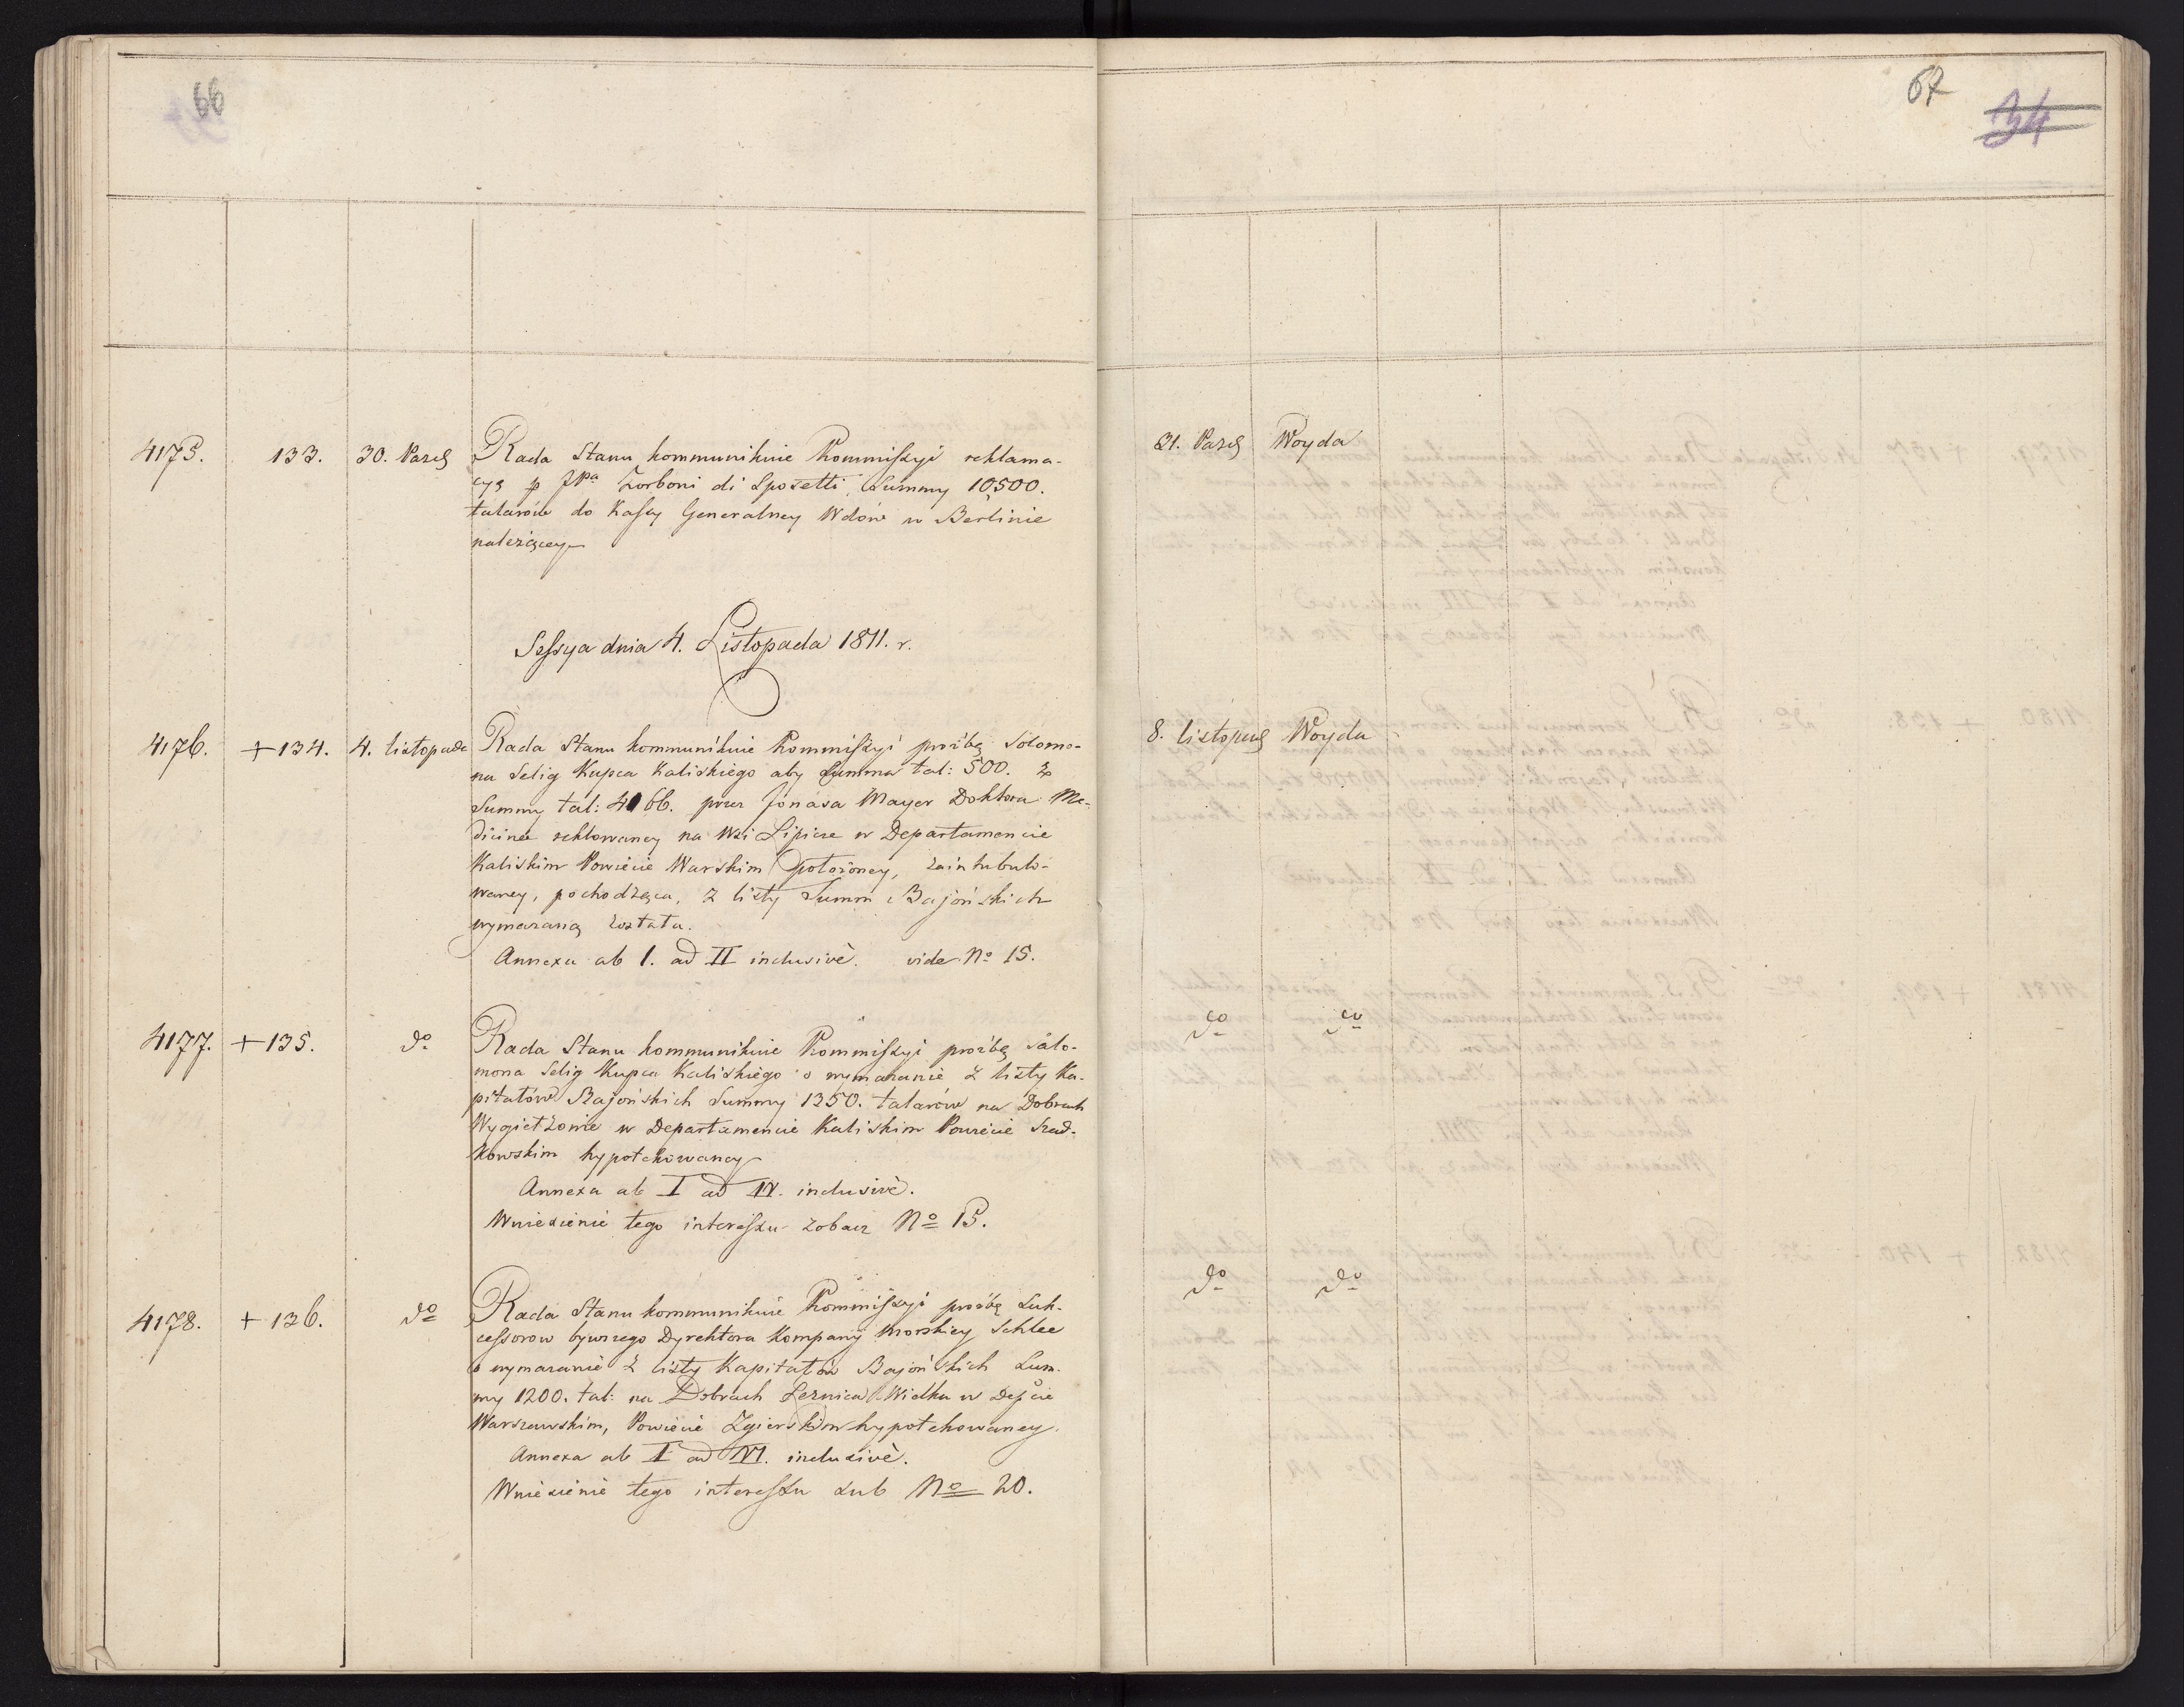 66
4175. 133. 30. Pazd Rada Stanu kommunikuie Kommissyi reklama-
cyą JPa Zorboni di Spozetti, Summy 10,500.
talarów do Kassy Generalney Wdów w Berlinie
należącey
Sessya dnia 4. Listopada 1811. r.
4176. +134. 4. listopada Rada Stanu kommunikuie Kommissyi prośbę Solomo-
na Selig Kupca Kaliskiego aby Summa tal: 500. z
Summy tal: 4066. przez Jonasa Mayer Doktora Me-
dicinae reklowaney na Wsi Lipicze w Departamencie
Kaliskim Powiecie Warskim położoney, zaintubulo-
waney, pochodząca, z listy Summ Bajońskich
wymazaną została.
Annexa ab I. ad II inclusivè. vide No 15.
4177. +135. do Rada Stanu kommunikuie Kommissyi prośbę Salo-
mona Selig Kupca Kaliskiego o wymazanie z listy Ka-
pitałów Bajońskich Summy 1350. talarów na Dobrach
Wygiełzowie w Departamencie Kaliskim Powiecie Szad-
kowskim hypotekowaney
Annexa ab I ad IV. inclusivè.
Wniesienie tego interessu zobacz No 15.
4178. +136. do Rada Stanu kommunikuie Kommissyi prośbę Suk-
cessorow bywszego Dyrektora Kompanij morskiey Schlee
o wymazanie z listy Kapitałów Bajońskich Sum-
my 1200. tal: na Dobrach Leznica Wielka w Depcie
Warszawskim, Powiecie Zgierskim hypotekowaney.
Annexa ab I ad VI. inclusivè.
Wniesienie tego interessu sub No 20.
67
34
31. Pazd Woyda
8. listopad Woyda
do do
do do